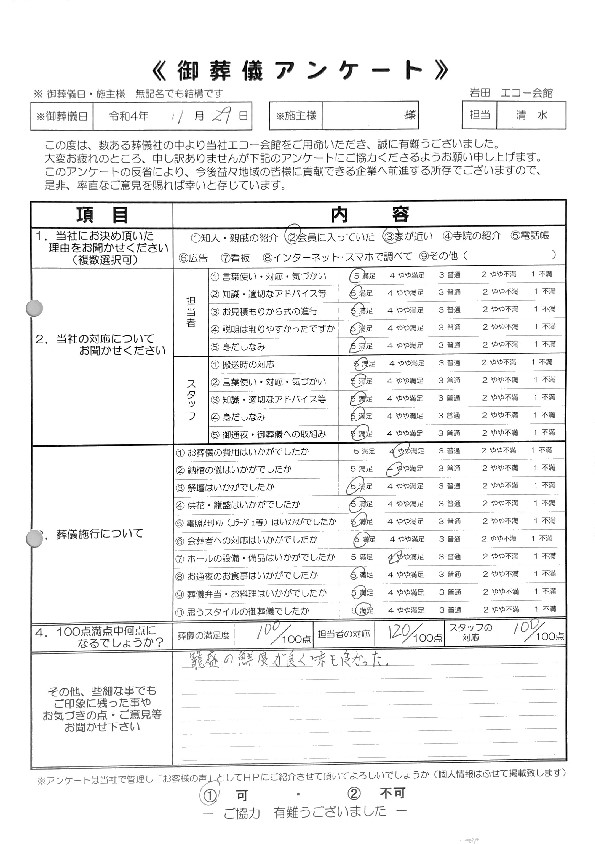 《御葬儀アンケート》
※ 御葬儀日・施主様 無記名でも結構です
岩田 エコー会館
※御葬儀日 令和4年 11月29日 ※施主様 様 担当 清水
この度は、数ある葬儀社の中より当社エコー会館をご用命いただき、誠に有難うございました。
大変お疲れのところ、申し訳ありませんが下記のアンケートにご協力くださるようお願い申し上げます。
このアンケートの反省により、今後益々地域の皆様に貢献できる企業へ前進する所存でございますので、
是非、率直なご意見を賜れば幸いと存じています。
項目 内容
1.当社にお決め頂いた
理由をお聞かせください
(複数選択可)
①知人・親戚の紹介 ②会員に入っていた ③家が近い ④寺院の紹介 ⑤電話帳
⑥広告 ⑦看板 ⑧インターネット・スマホで調べて ⑨その他( )
2.当社の対応について
お聞かせください
担当者
①言葉使い・対応・気づかい 5 満足 4 やや満足 3 普通 2 やや不満 1 不満
②知識・適切なアドバイス等 5 満足 4 やや満足 3 普通 2 やや不満 1 不満
③お見積もりから式の進行 5 満足 4 やや満足 3 普通 2 やや不満 1 不満
④説明は判りやすかったですか 5 満足 4 やや満足 3 普通 2 やや不満 1 不満
⑤身だしなみ 5 満足 4 やや満足 3 普通 2 やや不満 1 不満
スタッフ
①搬送時の対応 5 満足 4 やや満足 3 普通 2 やや不満 1 不満
②言葉使い・対応・気づかい 5 満足 4 やや満足 3 普通 2 やや不満 1 不満
③知識・適切なアドバイス等 5 満足 4 やや満足 3 普通 2 やや不満 1 不満
④身だしなみ 5 満足 4 やや満足 3 普通 2 やや不満 1 不満
⑤御通夜・御葬儀への取組み 5 満足 4 やや満足 3 普通 2 やや不満 1 不満
葬儀施行について
①お葬儀の費用はいかがでしたか 5 満足 4 やや満足 3 普通 2 やや不満 1 不満
②納棺の儀はいかがでしたか 5 満足 4 やや満足 3 普通 2 やや不満 1 不満
③祭壇はいかがでしたか 5 満足 4 やや満足 3 普通 2 やや不満 1 不満
④供花・籠盛はいかがでしたか 5 満足 4 やや満足 3 普通 2 やや不満 1 不満
(コラージュ等)はいかがでしたか 5 満足 4 やや満足 3 普通 2 やや不満 1 不満
⑥会葬者への対応はいかがでしたか 5 満足 4 やや満足 3 普通 2 やや不満 1 不満
⑦ホールの設備・備品はいかがでしたか 5 満足 4 やや満足 3 普通 2 やや不満 1 不満
⑧お通夜のお食事はいかがでしたか 5 満足 4 やや満足 3 普通 2 やや不満 1 不満
⑨葬儀弁当・お料理はいかがでしたか 5 満足 4 やや満足 3 普通 2 やや不満 1 不満
⑩思うスタイルの御葬儀でしたか 5 満足 4 やや満足 3 普通 2 やや不満 1 不満
4.100点満点中何点に
なるでしょうか?
葬儀の満足度 100/100点 担当者の対応 120/100点 スタッフの対応 100/100点
その他、些細な事でも
ご印象に残った事や
お気づきの点・ご意見等
お聞かせ下さい
籠盛の鮮度が良く味も良かった。
※アンケートは当社で管理し「お客様の声」としてHPにご紹介させて頂いてよろしいでしょうか(個人情報は伏せて掲載致します)
① 可 ・ ② 不可
― ご協力 有難うございました ―